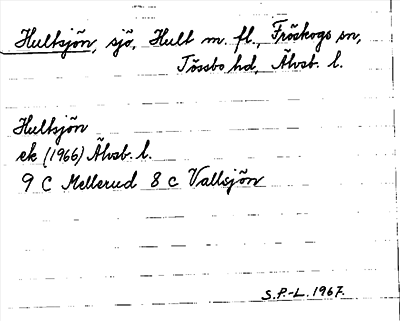 Hultsjön, sjö, Hult m. fl., Fröskogs sn,
Tössbo hd, Älvsb. l.
Hultsjön
ek (1966) Älvsb. l.
9 C Mellerud 8 c Vallsjön
S.P.-L. 1967.